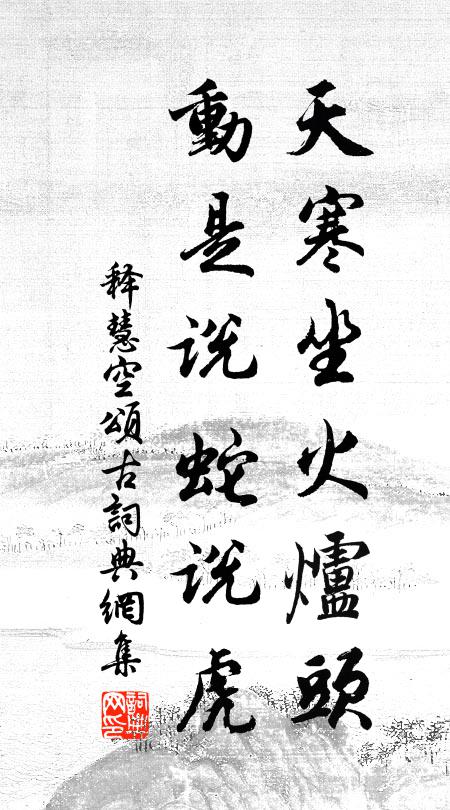 天寒坐火爐頭
動是说蛇说虎
释慧空頌古詞典網集